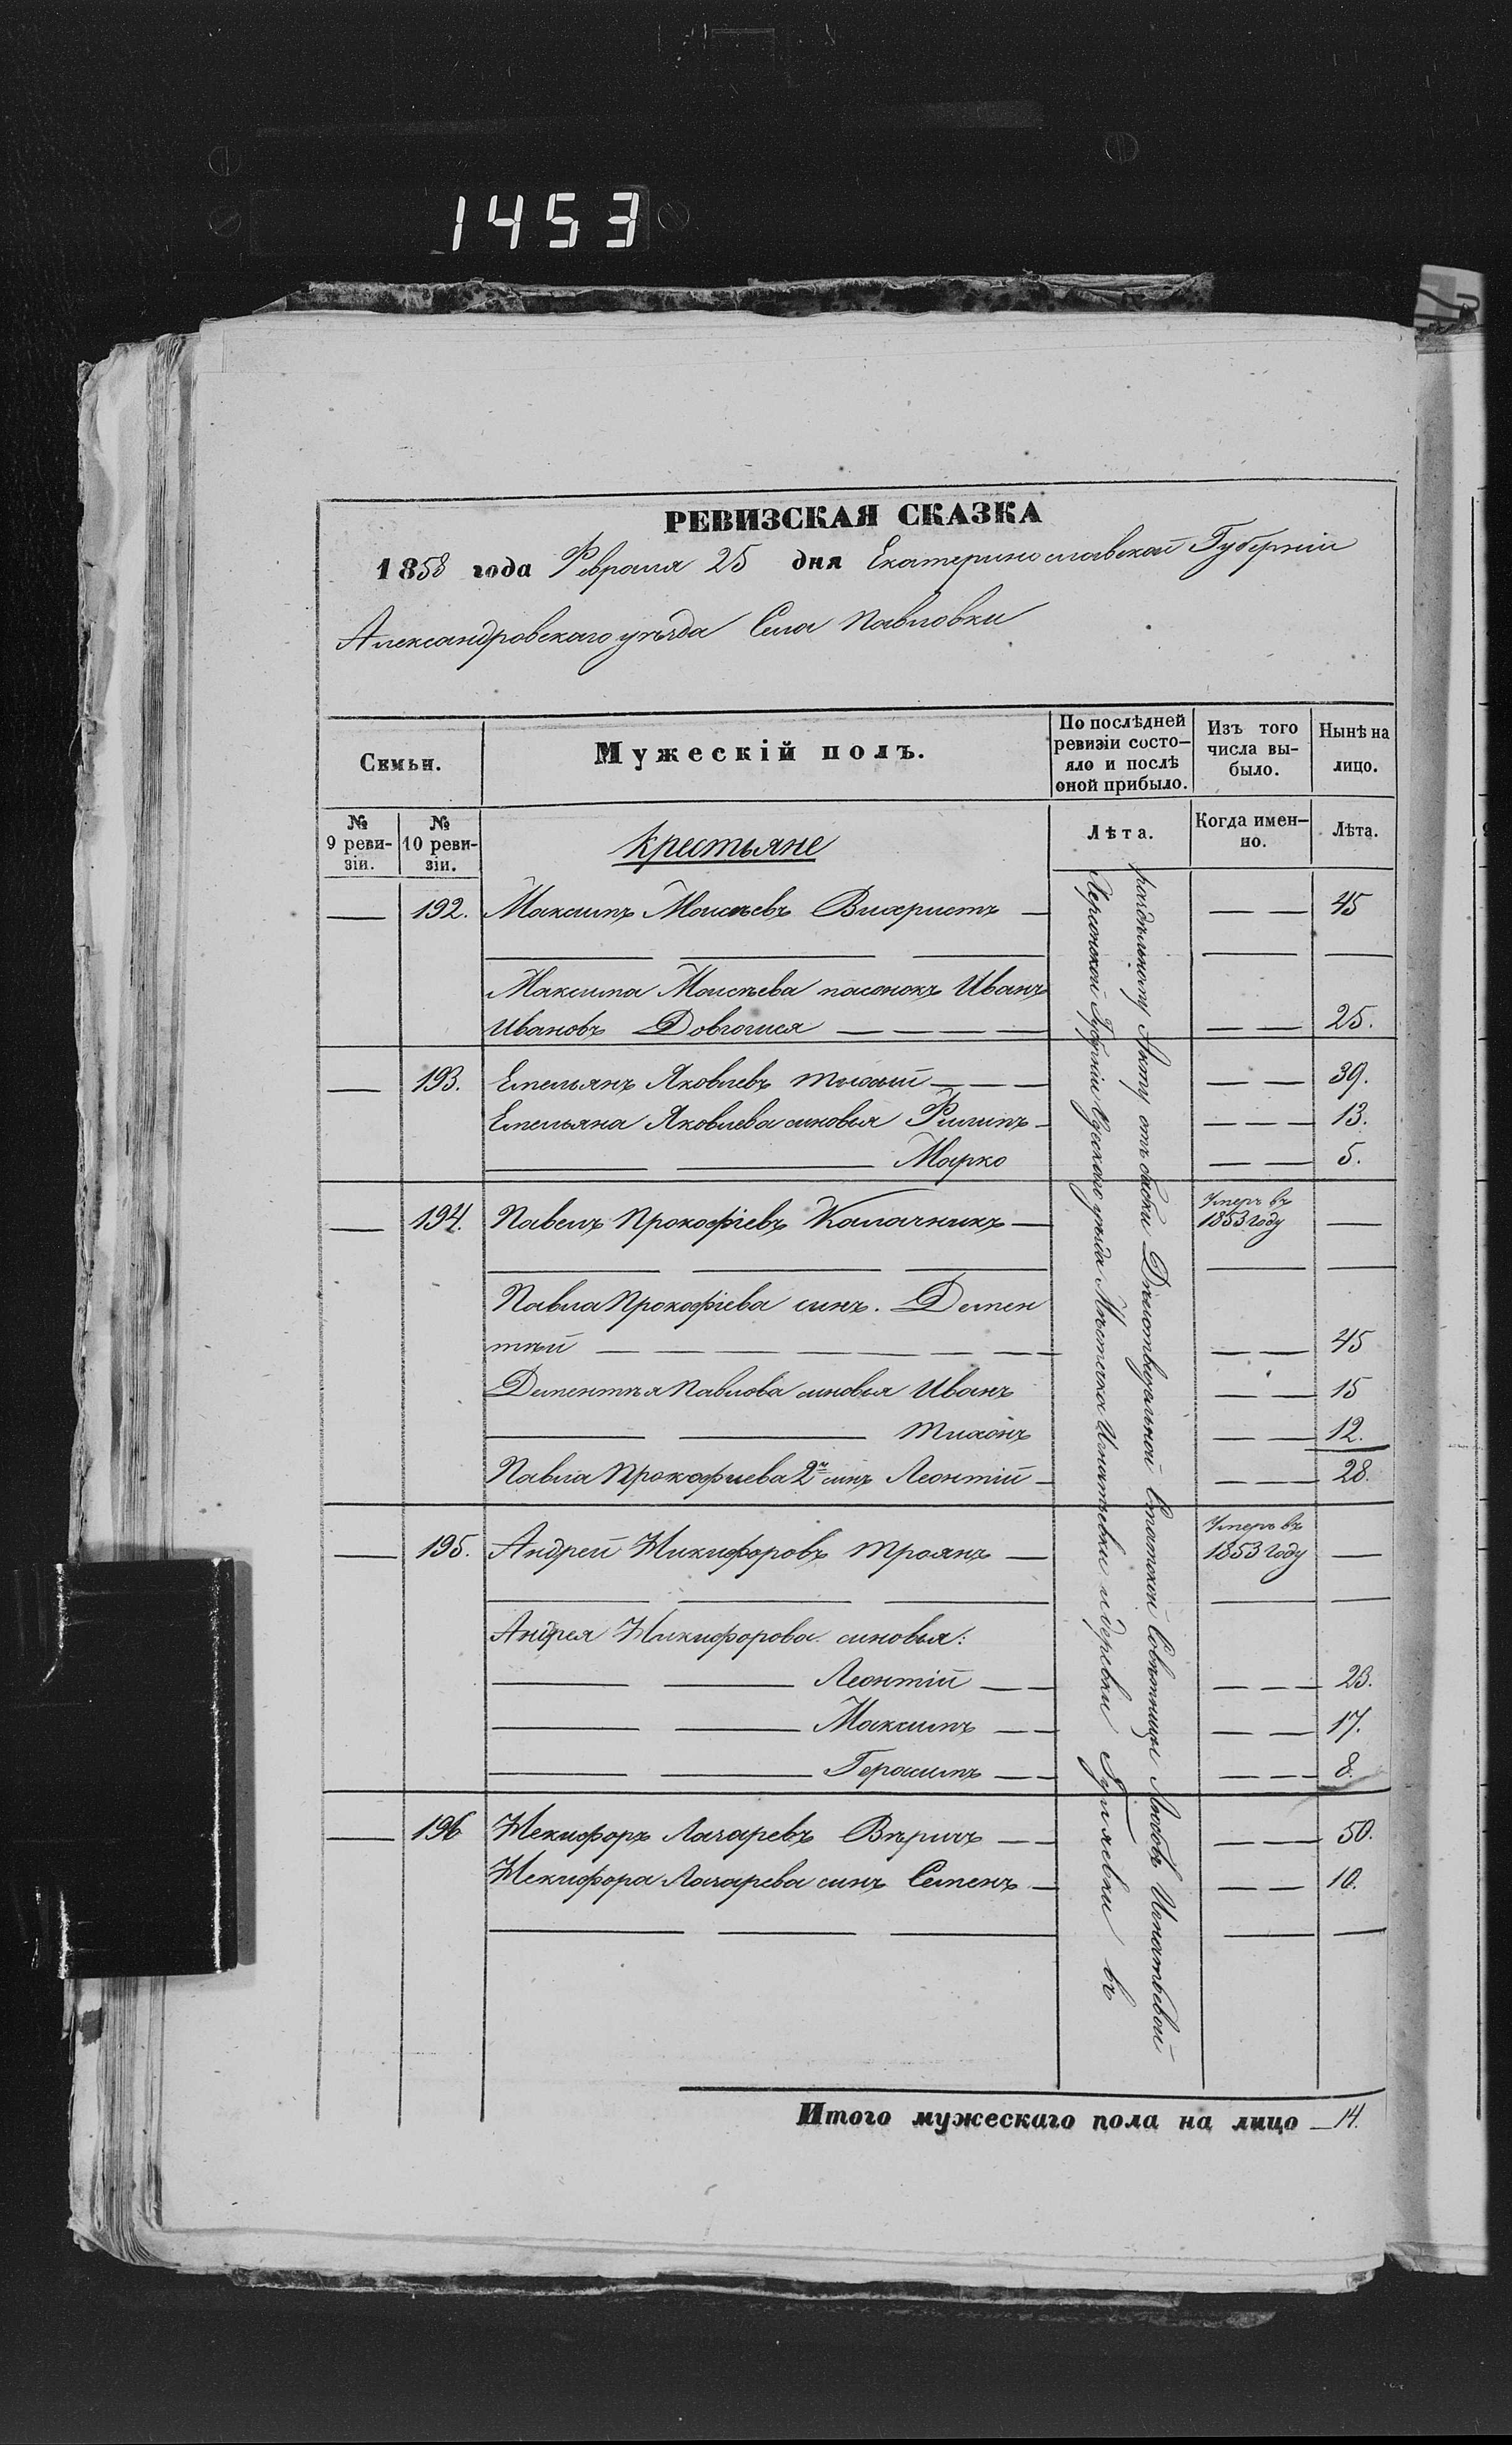 1453
РЕВИЗСКАЯ СКАЗКА
1858 года Февраля 25 дня Екатеринославской Губерніи
Александровскаго уѣзда Села Павловки
Семьи.
Мужескій полъ.
По послѣдней ревизіи состояло и послѣ оной прибыло.
Изъ того числа выбыло.
Нынѣ на лицо.
№ 9 ревизіи.
№ 10 ревизіи.
Крестьяне
Лѣта.
Когда именно.
Лѣта.
192. Максимъ Моисѣевъ — — — 45
Максима Моисѣева пасонокъ Иванъ
Ивановъ — — — 25.
193. Емельянъ Яковлевъ Тихий — — — 39.
Емельяна Яковлева синовья Филипъ — — — 13.
Марко — — 5.
194. Павелъ Прокофіевъ Калачникъ — Умеръ въ 1853 году —
Павла Прокофіева синъ. Демен
тѣй — — — 45
Дементѣя Павлова синовья Иванъ — — 15
Тихонъ — — 12.
Павла Прокофиева 2й синъ Леонтій — — — 28.
195. Андрей Никифоровъ Троянъ — Умеръ въ 1853 году —
Андрея Никифорова синовья:
Леонтій — — 23.
Максимъ — — 17.
Герасимъ — — 8.
196 Некифоръ Лазаревъ — — 50.
Некифора Лазарева синъ Семенъ — — 10.
Херсонской Губерніи Одескаго уѣзда Мѣстечка Игнатьевки и деревки въ
раздѣльному Акту отъ бабки Дѣйствительной Статской Совѣтницы Любовъ Игнатьевой
Итого мужескаго пола на лицо 14.